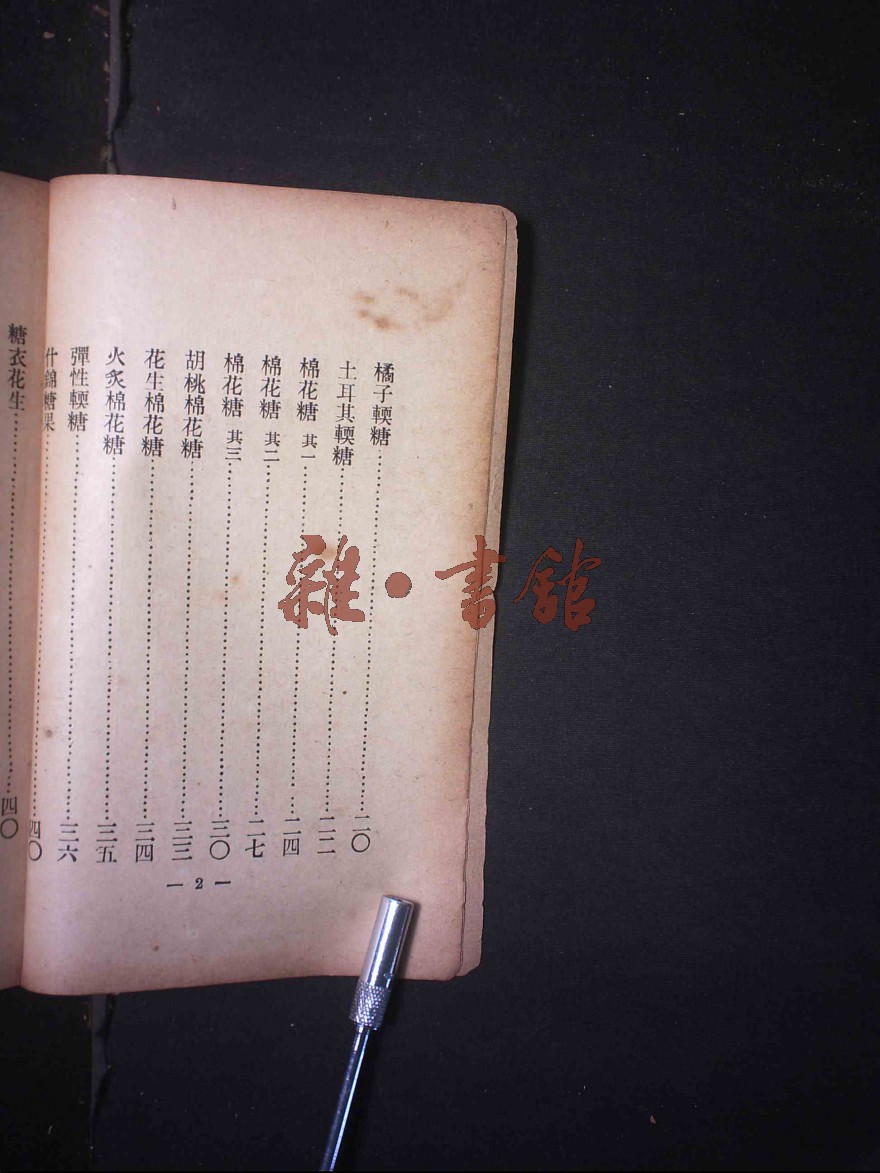 橘子輭糖……二〇
土耳其輭糖……二二
棉花糖 其一……二四
棉花糖 其二……二七
棉花糖 其三……三〇
胡桃棉花糖……三三
花生棉花糖……三四
火炙棉花糖……三五
彈性輭糖……三六
什錦糖果……四〇
糖衣花生……四〇
— 2 —
雜·書館